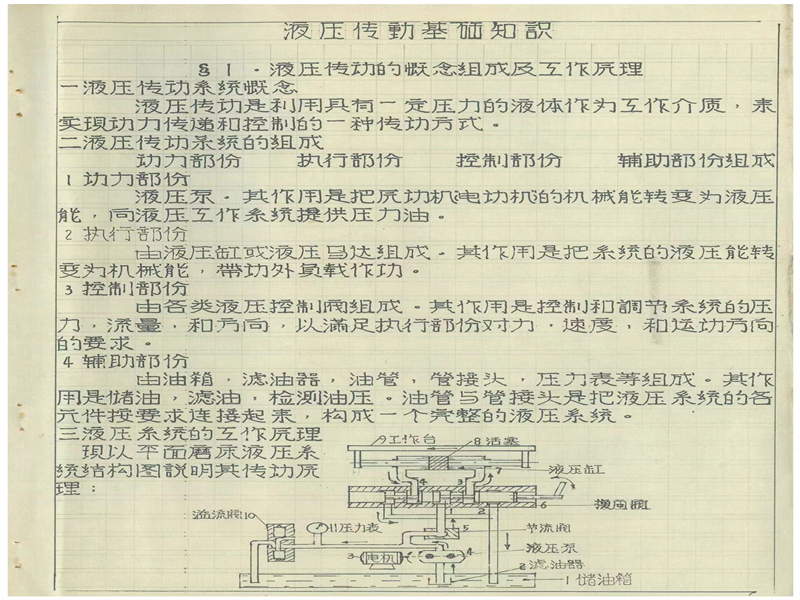 液压传動基础知識
§1.液压传动的概念组成及工作原理
一液压传动系统概念
液压传动是利用具有一定压力的液体作为工作介质，来
实現动力传递和控制的一种传动方式。
二液压传动系统的组成
动力部份 执行部份 控制部份 辅助部份组成
1 动力部份
液压泵.其作用是把原动机(电动机)的机械能转变为液压
能，向液压工作系统提供压力油。
2 执行部份
由液压缸或液压马达组成.其作用是把系统的液压能转
变为机械能，帶动外負载作功。
3 控制部份
由各类液压控制阀组成.其作用是控制和調节系统的压
力，流量，和方向，以滿足执行部份对力，速度，和运动方向
的要求。
4 辅助部份
由油箱，滤油器，油管，管接头，压力表等组成。其作
用是储油，滤油，检测油压。油管与管接头是把液压系统的各
元件按要求连接起来，构成一个完整的液压系统。
三液压系统的工作原理
現以平面磨床液压系
统结构图説明其传动原
理：
9工作台 8活塞
7
液压缸
4 3
6 换向阀
2
溢流阀10 11压力表 5 节流阀
3 电机 4 液压泵
2 滤油器
1储油箱